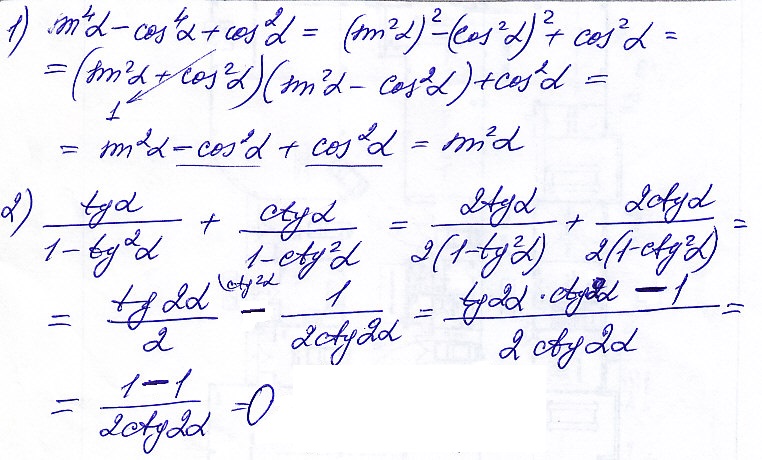 1) sin⁴α - cos⁴α + cos²α = (sin²α)² - (cos²α)² + cos²α =
= (sin²α + cos²α)(sin²α - cos²α) + cos²α =
1
= sin²α - cos²α + cos²α = sin²α
2) tgα/(1 - tg²α) + ctgα/(1 - ctg²α) = 2tgα/(2(1 - tg²α)) + 2ctgα/(2(1 - ctg²α)) =
= tg2α/2 \ctg2α - 1/(2ctg2α) = (tg2α · ctg2α - 1)/(2ctg2α) =
= (1 - 1)/(2ctg2α) = 0